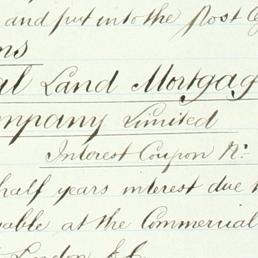 and put into the Post
ns
al Land Mortgag
ompany Limited
Interest Coupon No
half years interest due
able at the Commercial
London